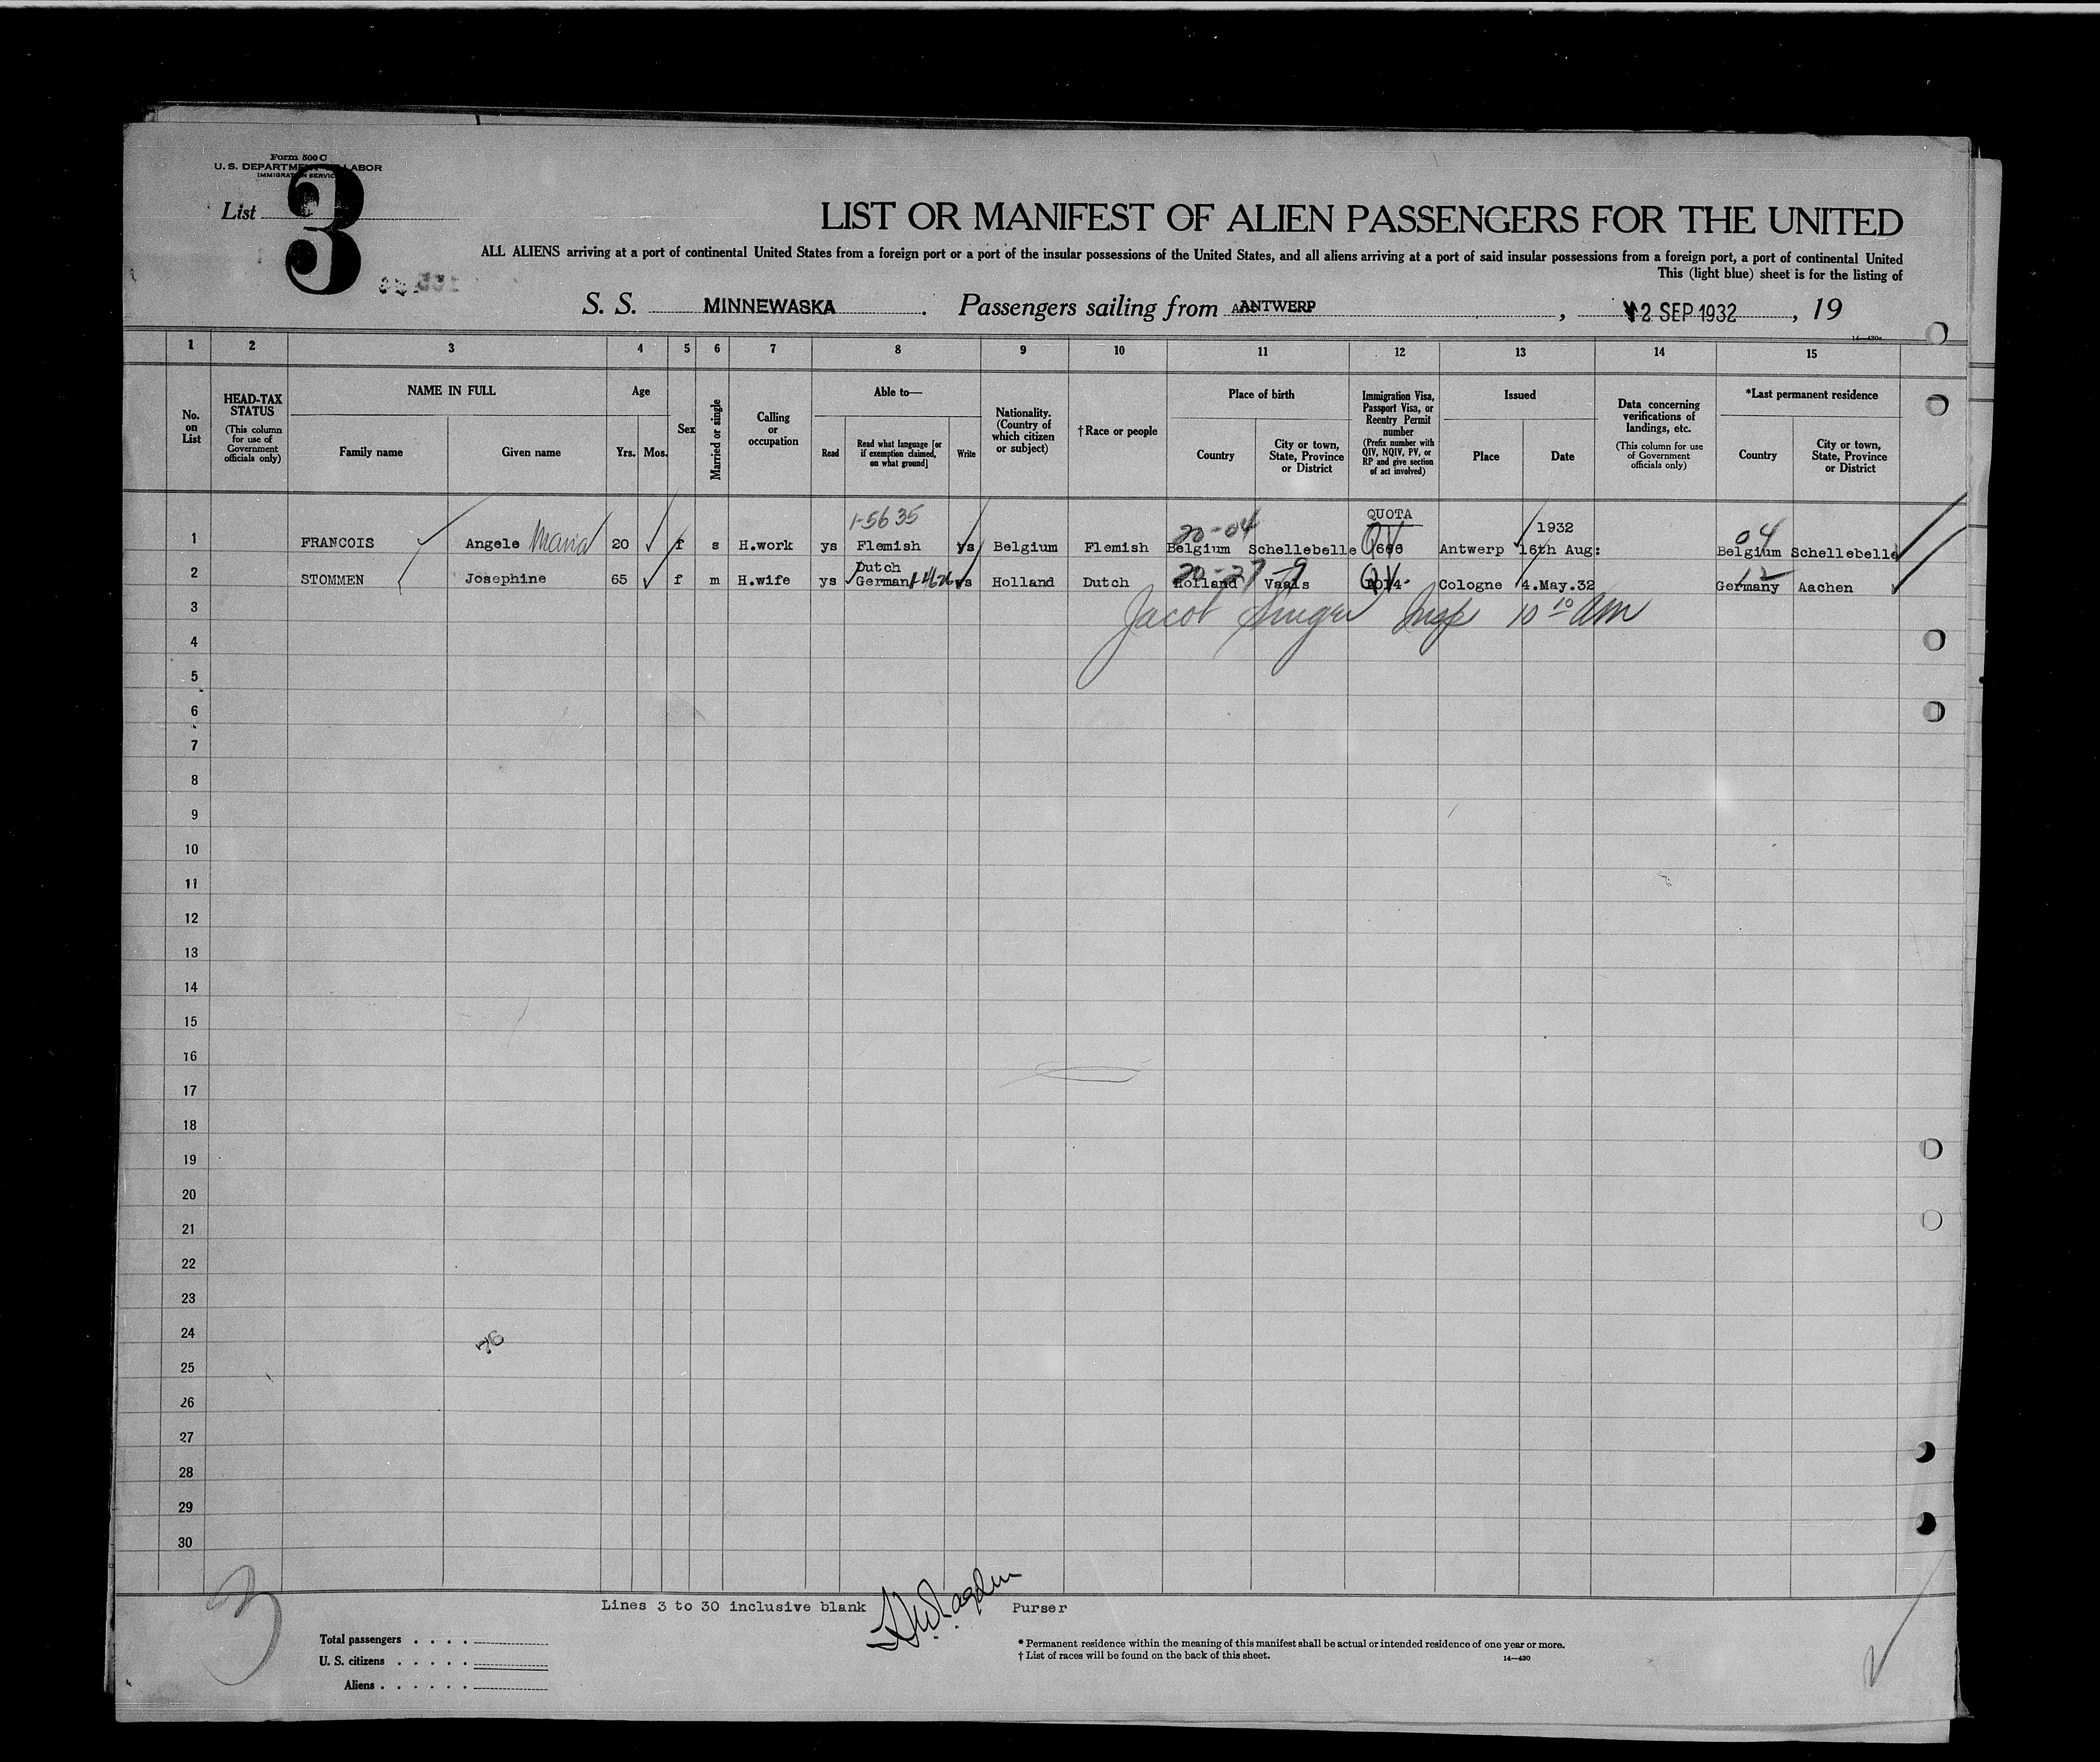 Form 500 C
U. S. DEPARTMENT LABOR
IMMIGRATION SERVICE
List 3
LIST OR MANIFEST OF ALIEN PASSENGERS FOR THE UNITED
ALL ALIENS arriving at a port of continental United States from a foreign port or a port of the insular possessions of the United States, and all aliens arriving at a port of said insular possessions from a foreign port, a port of continental United
This (light blue) sheet is for the listing of
S. S. MINNEWASKA. Passengers sailing from ANTWERP, 2 SEP 1932, 19
1 2 3 4 5 6 7 8 9 10 11 12 13 14 15
No. on List
HEAD-TAX STATUS (This column for use of Government officials only)
NAME IN FULL
Family name Given name
Age
Yrs. Mos.
Sex
Married or single
Calling or occupation
Able to—
Read
Read what language [or if exemption claimed, on what ground]
Write
Nationality. (Country of which citizen or subject)
†Race or people
Place of birth
Country
City or town, State, Province or District
Immigration Visa, Passport Visa, or Reentry Permit number (Prefix number with QIV, NQIV, PV, or RP and give section of act involved)
Issued
Place Date
Data concerning verifications of landings, etc. (This column for use of Government officials only)
*Last permanent residence
Country
City or town, State, Province or District
1-5635 20-04 QUOTA 1932 04
1 FRANCOIS Angele Maria 20 f s H.work ys Flemish ys Belgium Flemish Belgium Schellebelle QV Antwerp 16th Aug: Belgium Schellebelle
Dutch 20-27-9 12
2 STOMMEN Josephine 65 f m H.wife ys German ys Holland Dutch Holland Vaals QV Cologne 4.May.32 Germany Aachen
3
Jacob Singer Insp 10 10 AM
4
5
6
7
8
9
10
11
12
13
14
15
16
17
18
19
20
21
22
23
24
76
25
26
27
28
29
30
3
Lines 3 to 30 inclusive blank Purser
Total passengers . . . .
U. S. citizens . . . . .
Aliens . . . . . .
* Permanent residence within the meaning of this manifest shall be actual or intended residence of one year or more.
† List of races will be found on the back of this sheet.
14—430